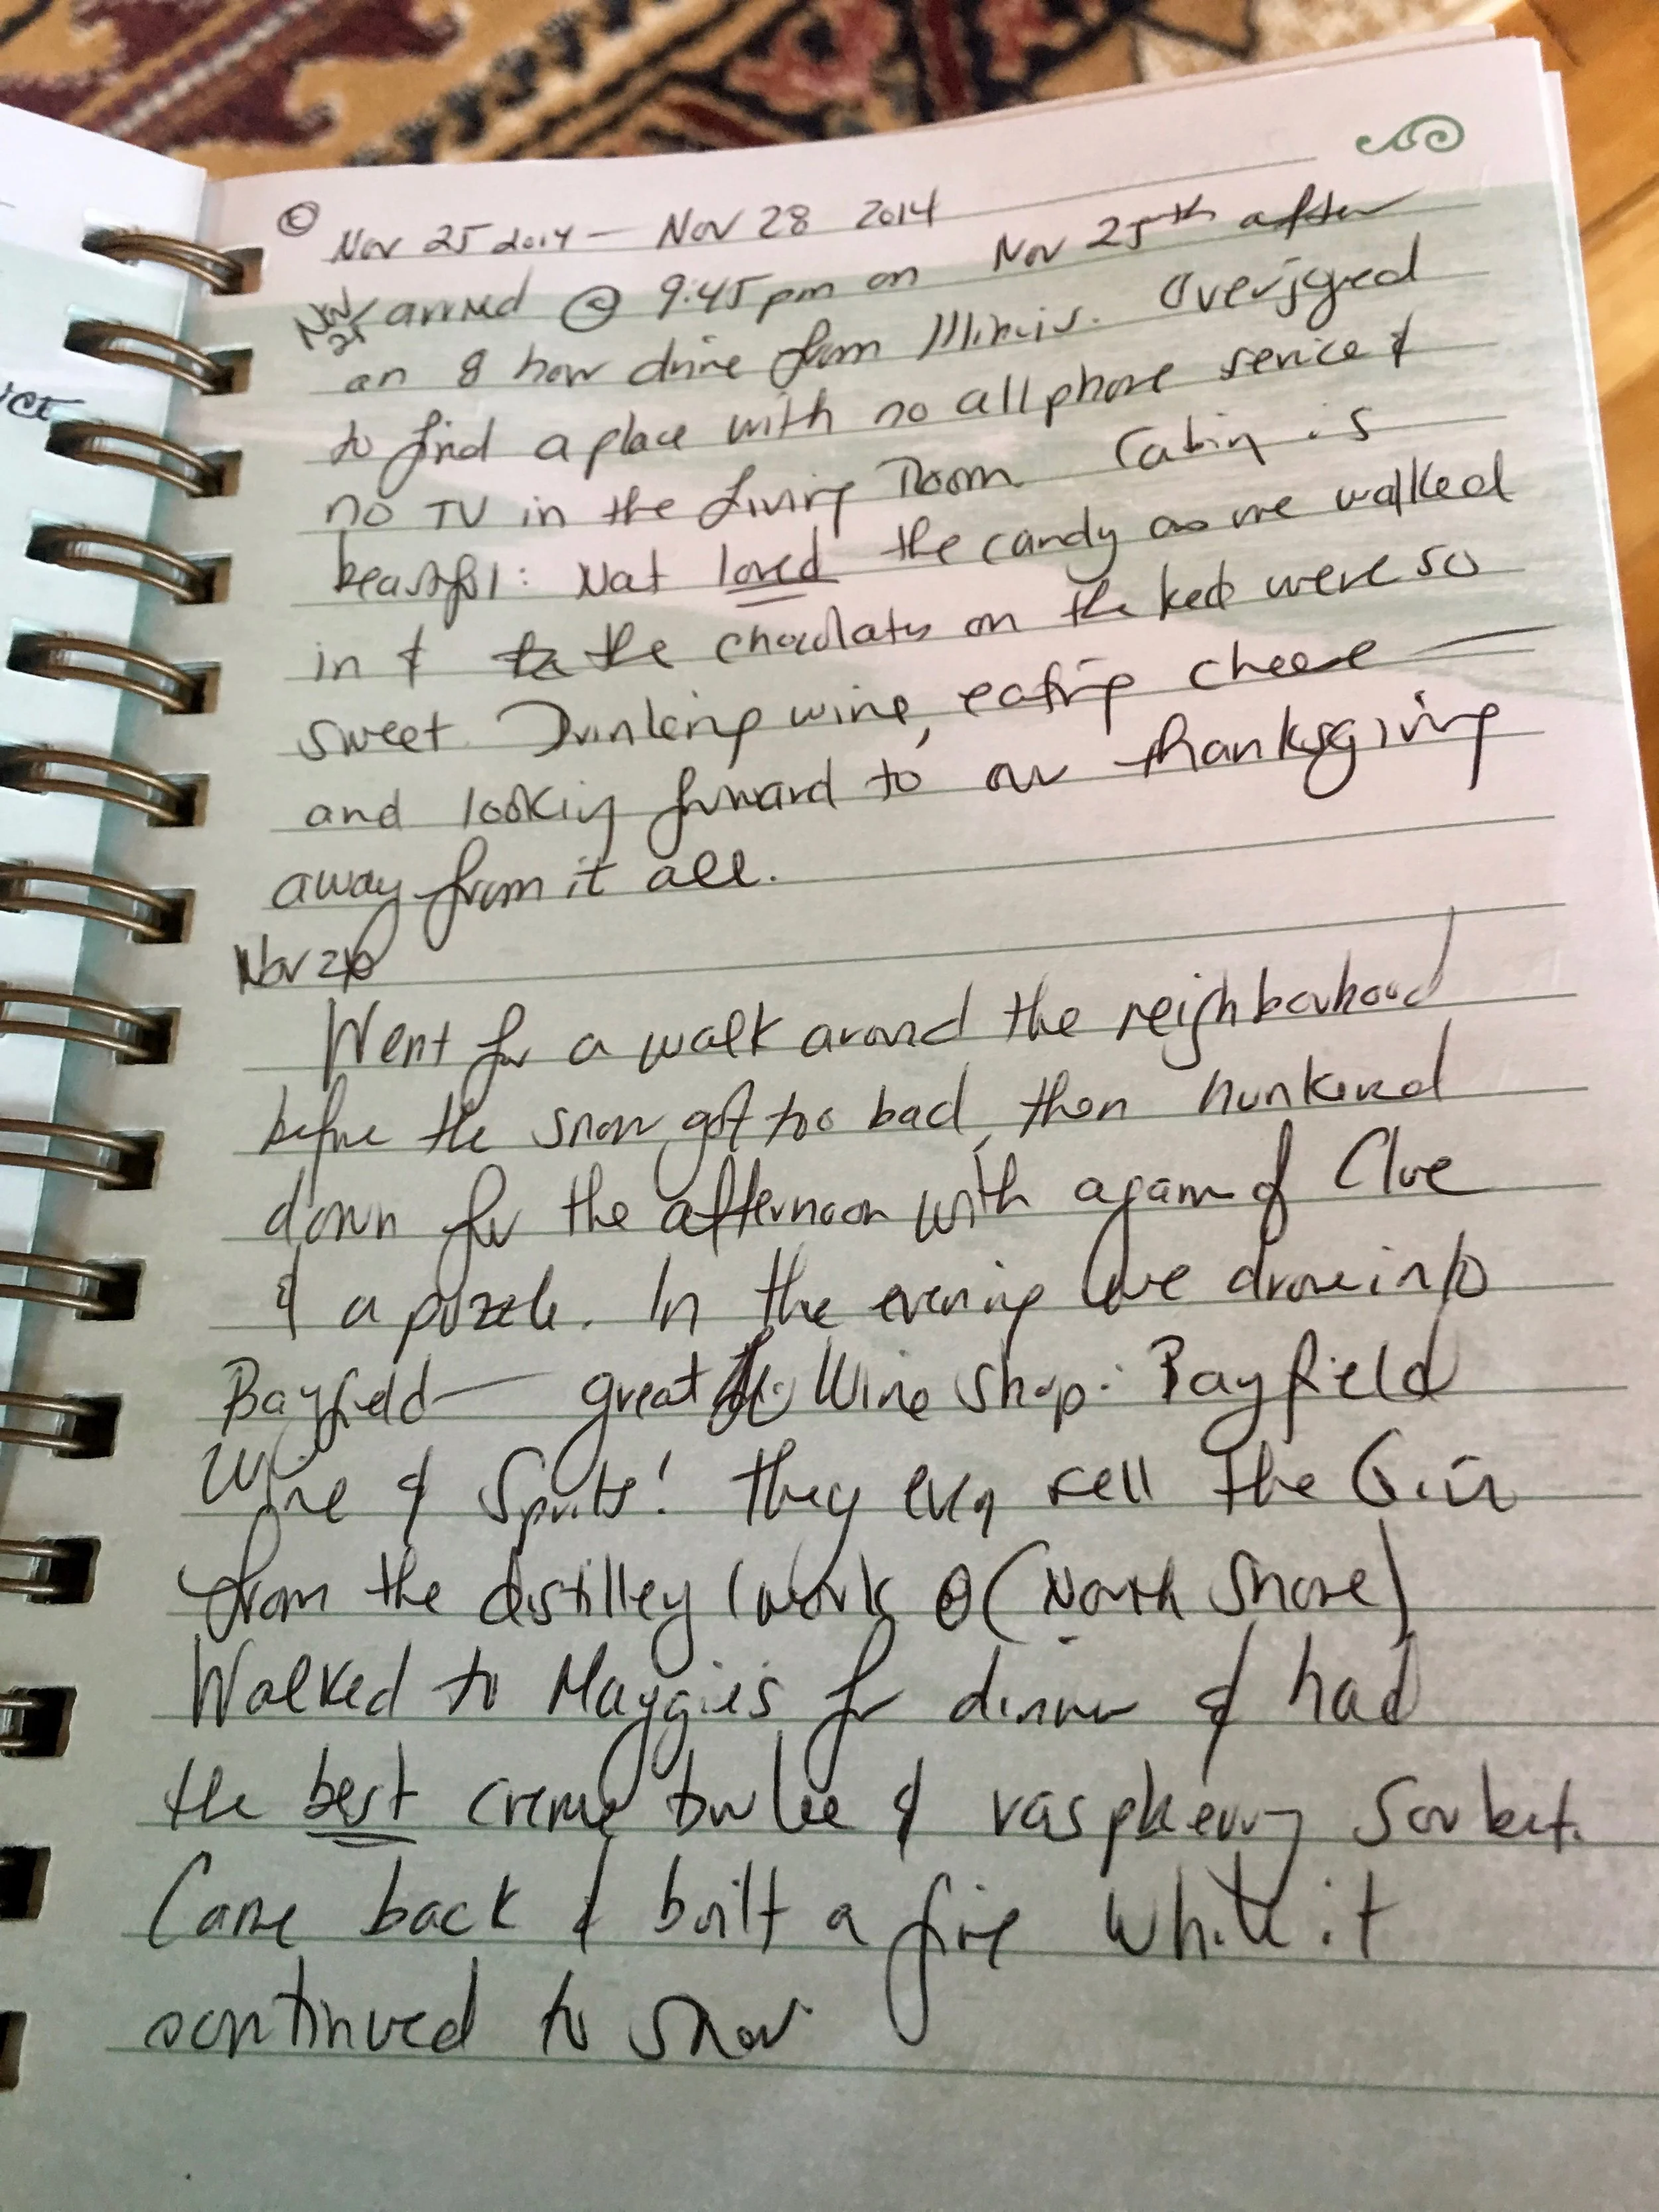 Nov 25 2014 — Nov 28 2014
Nov 25 arrived @ 9:45 pm on Nov 25th after
an 8 hour drive from Illinois. Overjoyed
to find a place with no cell phone service &
no TV in the Living Room. Cabin is
beautiful: Nat loved the candy as we walked
in & the chocolates on the beds were so
sweet. Drinking wine, eating cheese —
and looking forward to our thanksgiving
away from it all.
Nov 26
Went for a walk around the neighbourhood
before the snow got too bad, then hunkered
down for the afternoon with a game of Clue
& a puzzle. In the evening we drove into
Bayfield — great Wine Shop: Bayfield
Wine & Spirits! They even sell the Gin
from the distillery I work @ (North Shore)
Walked to Maggie's for dinner & had
the best creme brulee & raspberry sorbet.
Came back & built a fire while it
continued to snow